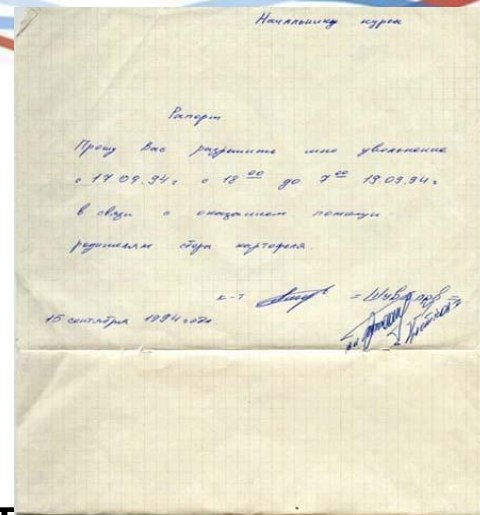 Начальнику курса
Рапорт
Прошу Вас разрешить мне увольнение
с 17.09.94г с 18 00 до 7 00 19.09.94г
в связи с оказанием помощи
родителям сбора картофеля.
к-т = Шувалов =
15 сентября 1994 года